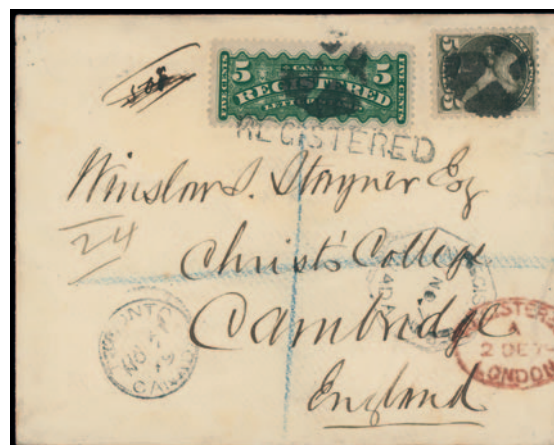 5 CANADA 5
FIVE CENTS REGISTERED FIVE CENTS
LETTER
5 5
REGISTERED
Winslow S. Stayner Esq
24
Christ's College
Cambridge
England
TORONTO
NO
CANADA
NO
REGISTERED
A
2 DE 79
LONDON